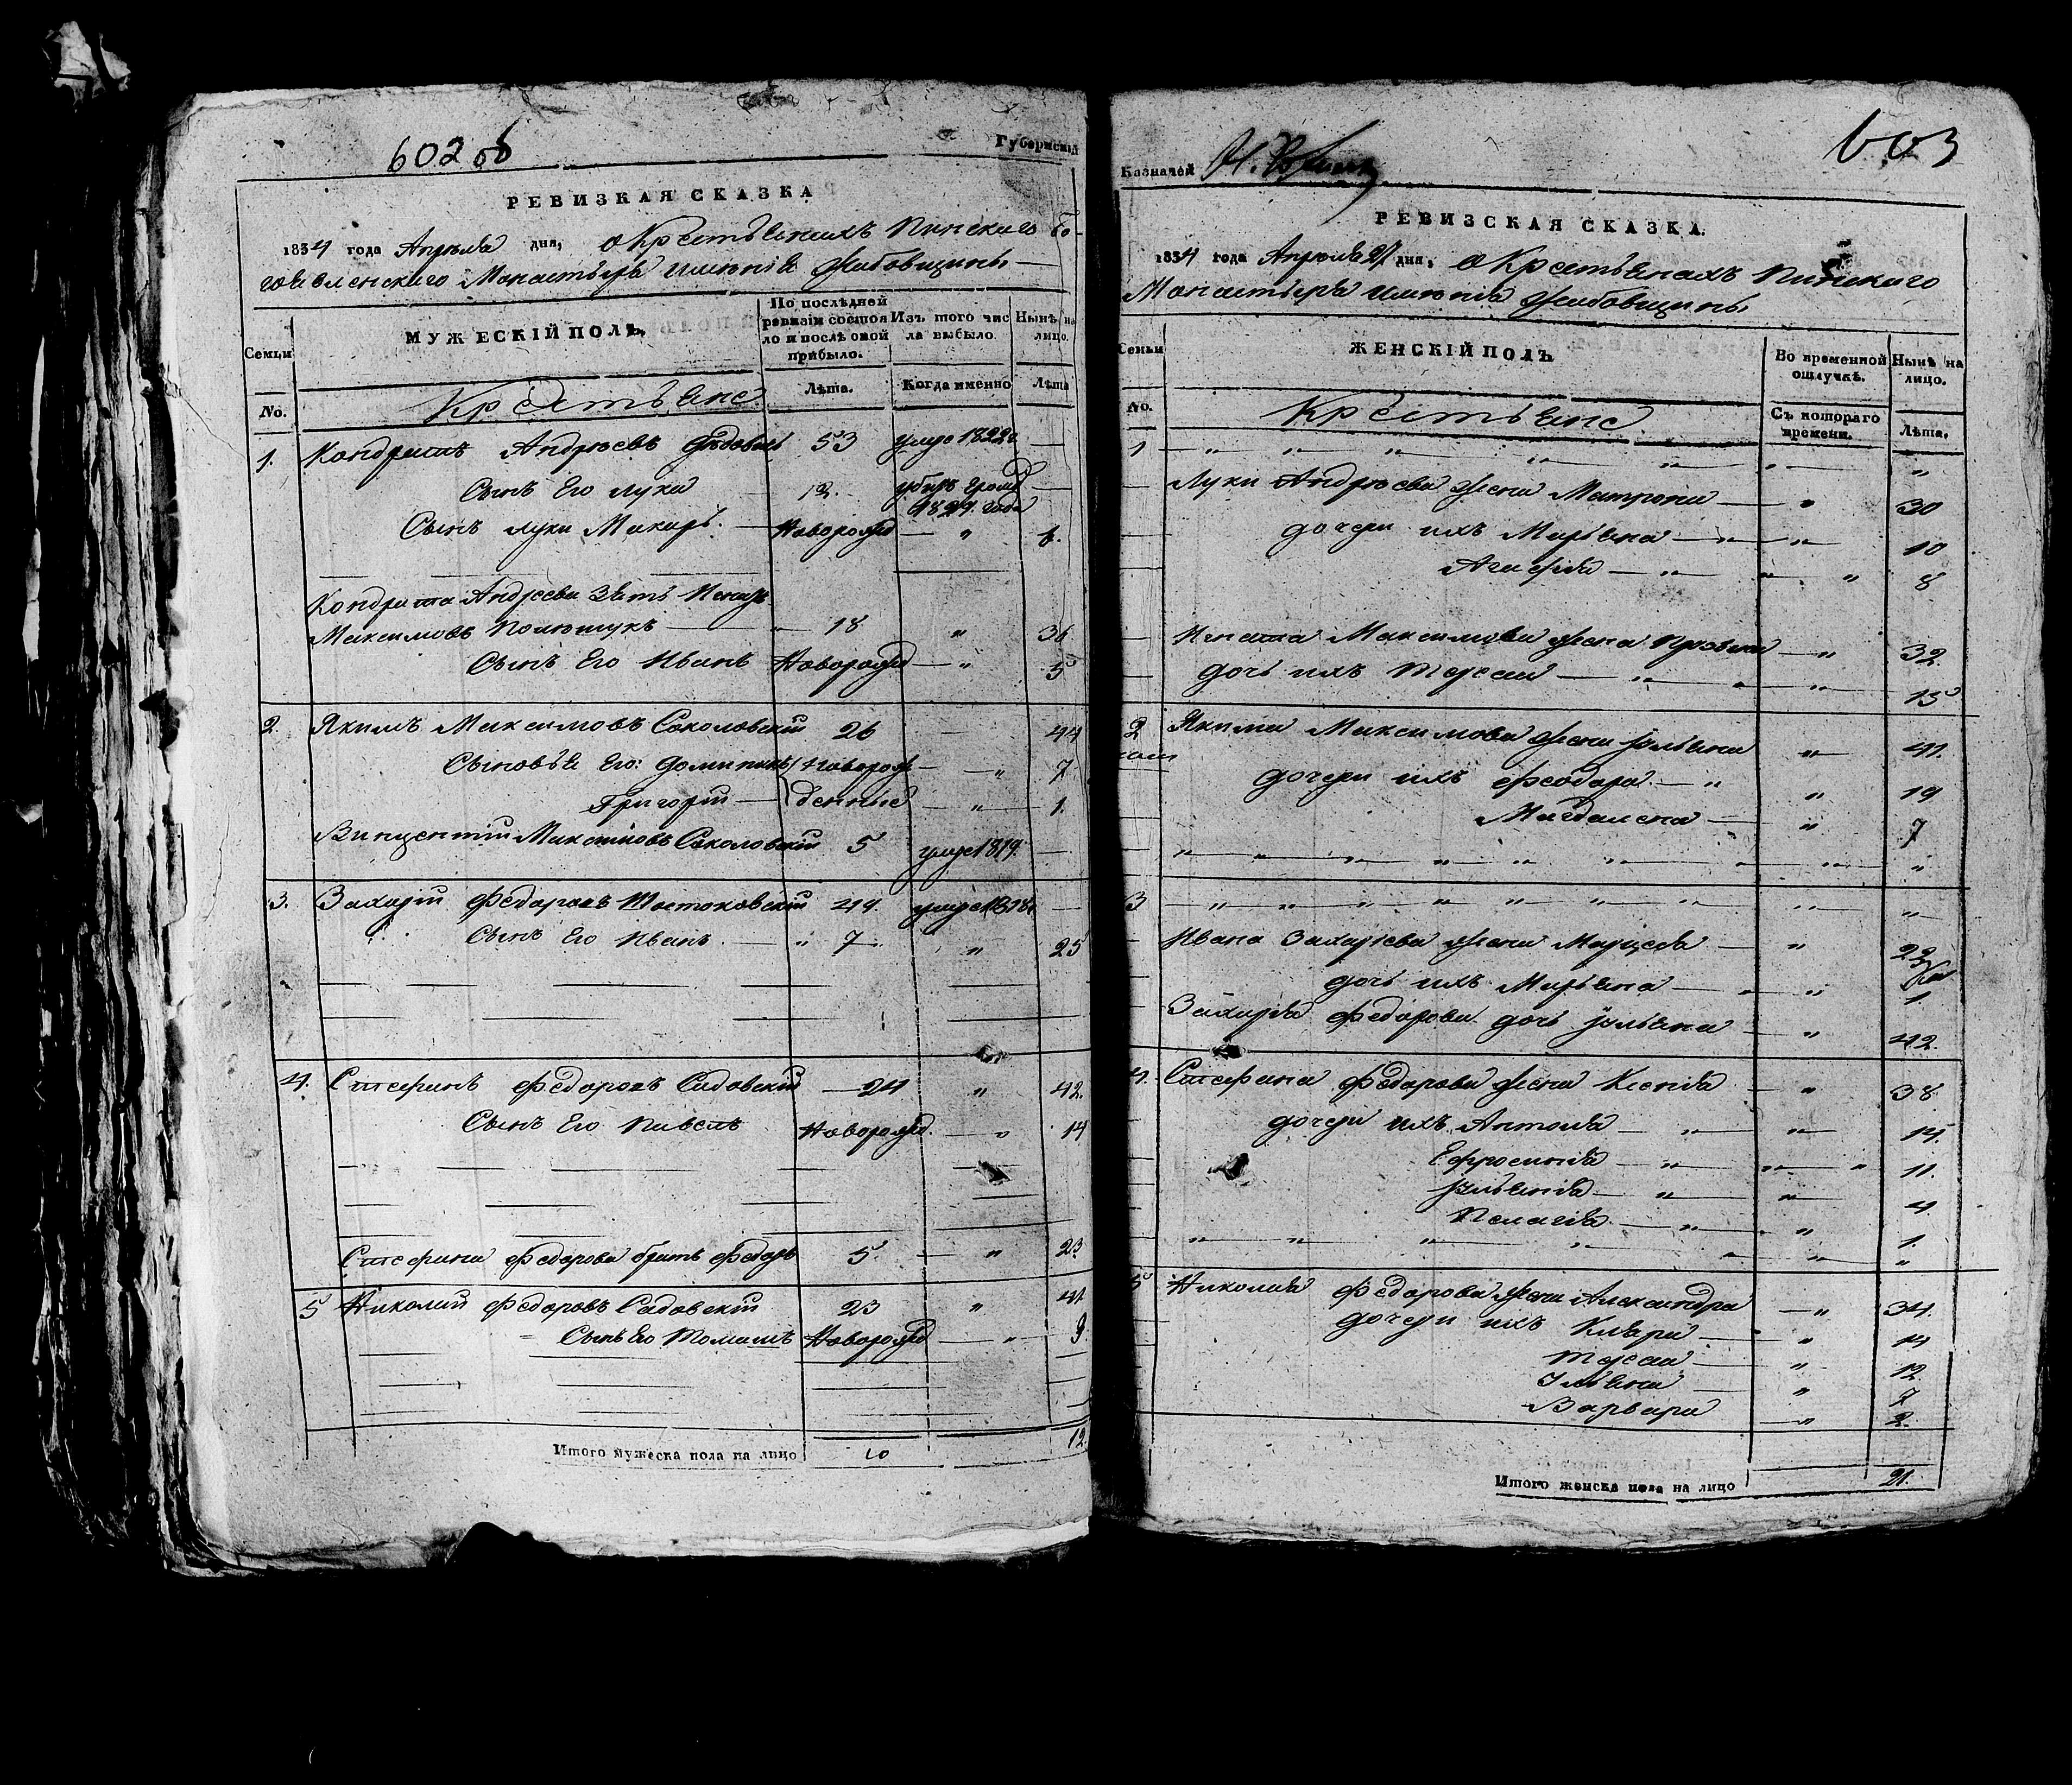 602 об
Губернскій
РЕВИЗКАЯ СКАЗКА
1834 года Апрѣля дня, о Крестьянахъ Пинскаго Бо-
гоявленскаго Монастыря имѣнія
Семьи
МУЖЕСКІЙ ПОЛЪ,
По послѣдней ревизіи состояло и послѣ оной прибыло.
Изъ того числа выбыло.
Нынѣ на лицо.
No.
Крестьяне
Лѣта.
Когда именно
Лѣта
1. Кондратъ Андрѣевъ 53 умре 1822г. —
Сынъ Его Лука — 12. 1829. года —
Сынъ Луки Макаръ. — Новорожд — „ 6.
Кондрата Андреева Зять Игнатъ
Максимовъ Полюшукъ — 18 „ 36
Сынъ Его Иванъ Новорожд — „ 5
2. Якимъ Максимовъ Соколовскій 26 — 44
Сыновья Его: Доминикъ Новорож — „ 7
Григорій — денные — „ — 1.
Винцентій Максимовъ Соколовскій 5 умре 1819. —
3. Захарій Федоровъ 44. умре —
Сынъ Его Иванъ. — „ 7 — „ 25
4. Стефанъ Федоровъ Садовскій — 24 „ 42.
Сынъ Его Павелъ Новорожд. — „ 14
Стефана Федорова братъ Федоръ 5. — „ 23
5 Николай Федоровъ Садовскій 23 „ 41
Сынъ Его Томашъ Новорожд — „ 9
Итого мужеска пола на лицо 10 12.
603
Казначей
РЕВИЗСКАЯ СКАЗКА.
1834 года Апрѣля дня, о Крестьянахъ Пинскаго
Монастыря имѣнія
Семьи
ЖЕНСКІЙ ПОЛЪ
Во временной отлучкѣ.
Нынѣ на лицо.
No.
Крестьяне
Съ котораго времени.
Лѣта.
1 — „ „ „ „ „ „ „
Луки Андрѣева жена Матрона — „ 30
дочери ихъ Марьяна — „ — „ 10
Агафія — „ — „ — „ 8
Игната Максимова жена — „ 32.
дочь ихъ Тереса — „ — „ 15
2 Якима Максимова жена Ульяна „ 41.
дочери ихъ Феодора. — „ „ 19
Магдалена — „ 7
„ „ „ „ „ „ „ „ „
3 — „ „ „ „ „ „ „ „ „
Ивана Захарьева жена — „ 22
дочь ихъ Марьяна — „ „ 1
Захарія Федорова дочь Ульяна — „ 42.
4. Стефана Федорова жена Ксенія — „ 38
дочери ихъ Антоля — „ — „ 14.
Ефросинія — „ — „ — „ 11.
Ульянія — „ — „ 4
Пелагія — „ — „ 1.
„ „ „ „ „ „ „
5 Николая Федорова жена Александра — „ 34.
дочери ихъ Клара — „ 14
Тереса — „ 12
Ульяна — „ 7
Варвара — „ 2.
Итого женска пола на лицо 21.